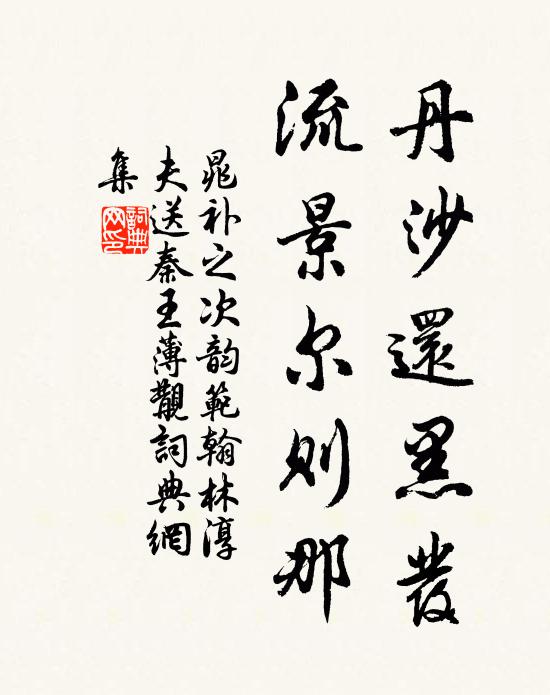 丹沙還黑發
流景尔則那
晁补之次韵範翰林淳
夫送秦王薄觀詞典網
集
詞典
网印